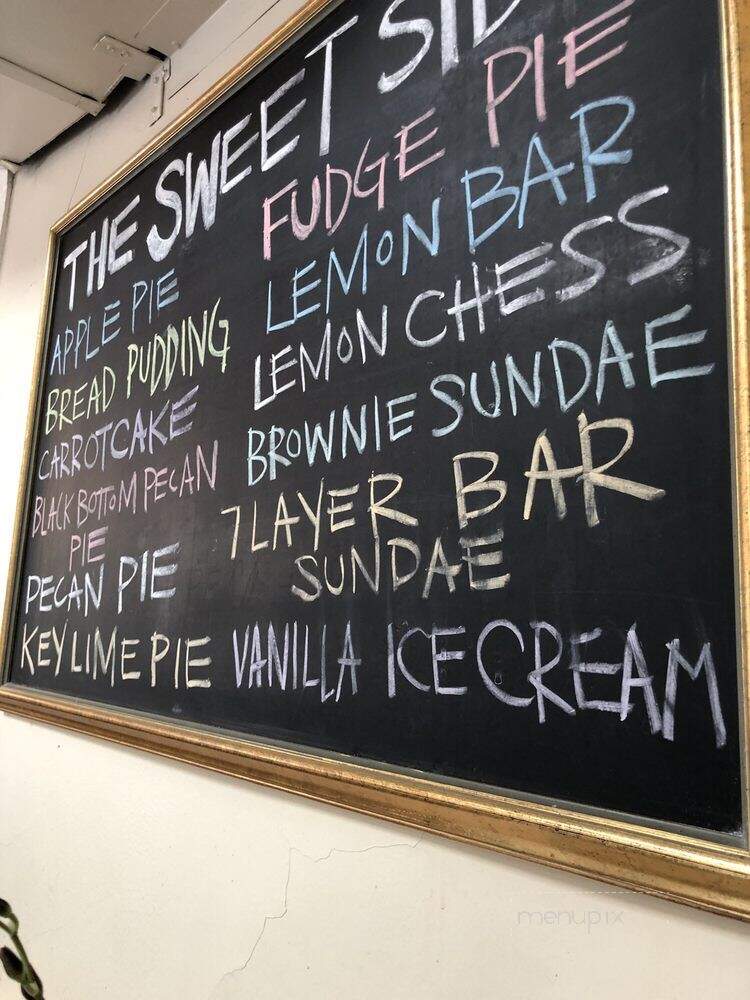 THE SWEET SID
APPLE PIE
BREAD PUDDING
CARROTCAKE
BLACK BOTTOM PECAN
PIE
PECAN PIE
KEY LIME PIE
FUDGE PIE
LEMON BAR
LEMON CHESS
BROWNIE SUNDAE
7 LAYER BAR
SUNDAE
VANILLA ICE CREAM
menupix